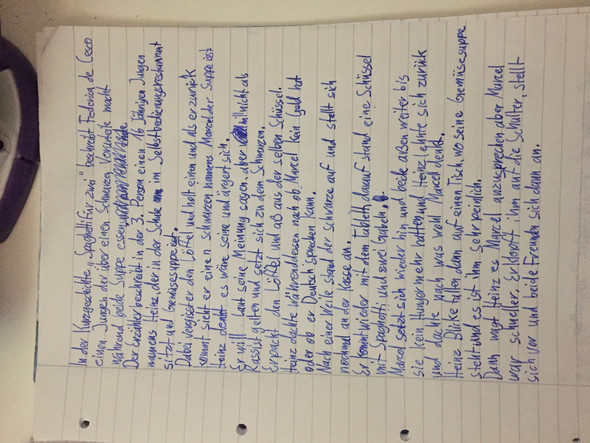 In der Kurzgeschichte „Spaghetti für zwei" beschreibt Federica de Cesco
einen Jungen der über einen Schwarzen Vorurteile macht
während beide Suppe essen
Der Erzähler beschreibt in der 3. Person einen 16 jährigen Jungen
namens Heinz, der in der Schule im Selbstbedienungsrestaurant
sitzt und Gemüsesuppe isst.
Dabei vergisst er den Löffel und holt einen und als er zurück
kommt sieht er eine n schwarzen namens Marcel der Suppe isst
Heinz denkt es wäre seine und ärgert sich.
Er will laut seine Meinung sagen, aber will nicht als
Rassist gelten und setzt sich zu dem Schwarzen.
Er nimmt den Löffel und aß aus der selben Schüssel.
Heinz dachte währenddessen nach ob Marcel kein Geld hat
oder ob er Deutsch sprechen kann.
Nach einer Weile stand der Schwarze auf und stellt sich
nochmal an der Kasse an.
Er kommt wieder mit dem Tablett darauf stand eine Schüssel
mit Spaghetti und zwei Gabeln.
Marcel setzt sich wieder hin und beide aßen weiter bis
sie kein Hunger mehr hatten und Heinz lehnte sich zurück
und dachte nach was wohl Marcel denkt.
Heinz Blicke fallen dann auf einen Tisch, wo seine Gemüsesuppe
steht und es ist ihm sehr peinlich.
Dann wagt Heinz es Marcel anzusprechen aber Marcel
war schneller. Er klopft ihm auf die Schulter, stellt
sich vor und beide Freunden sich dann an.